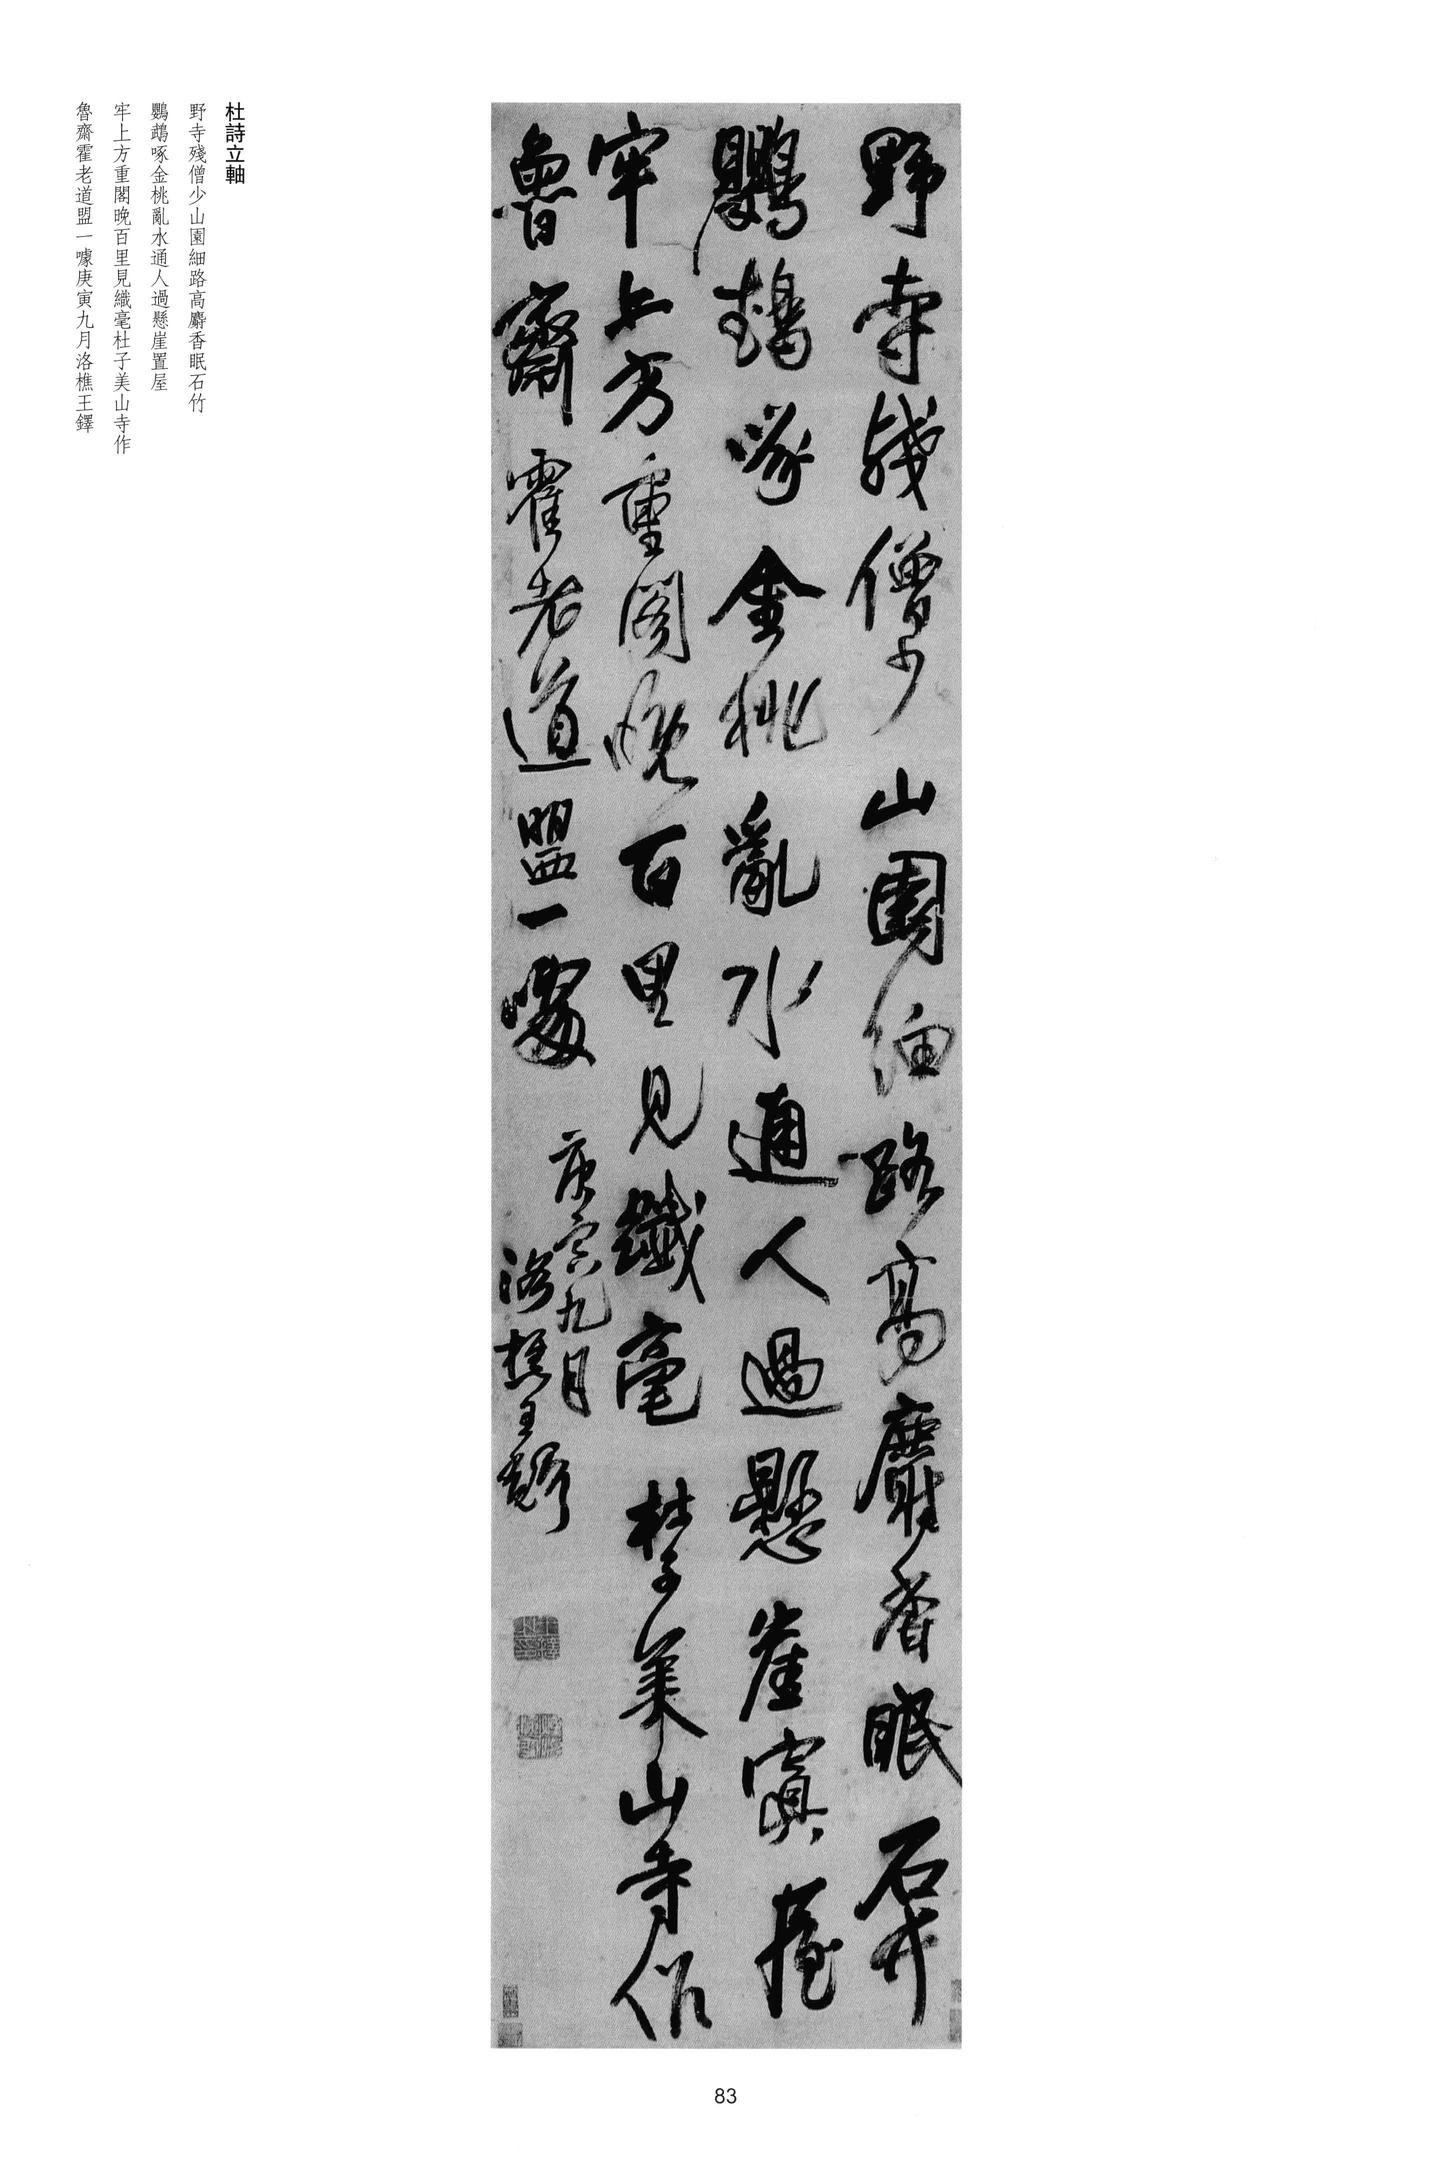 杜詩立軸
野寺殘僧少山園細路高麝香眠石竹
鸚鵡啄金桃亂水通人過懸崖置屋
牢上方重閣晚百里見織毫杜子美山寺作
魯齋霍老道盟一噱庚寅九月洛樵王鐸
野寺殘僧少山園細路高麝香眠石竹
鸚鵡啄金桃亂水通人過懸崖置屋
牢上方重閣晚百里見纖毫杜子美山寺作
魯齋霍老道盟一噱
庚寅九月
洛樵王鐸
83